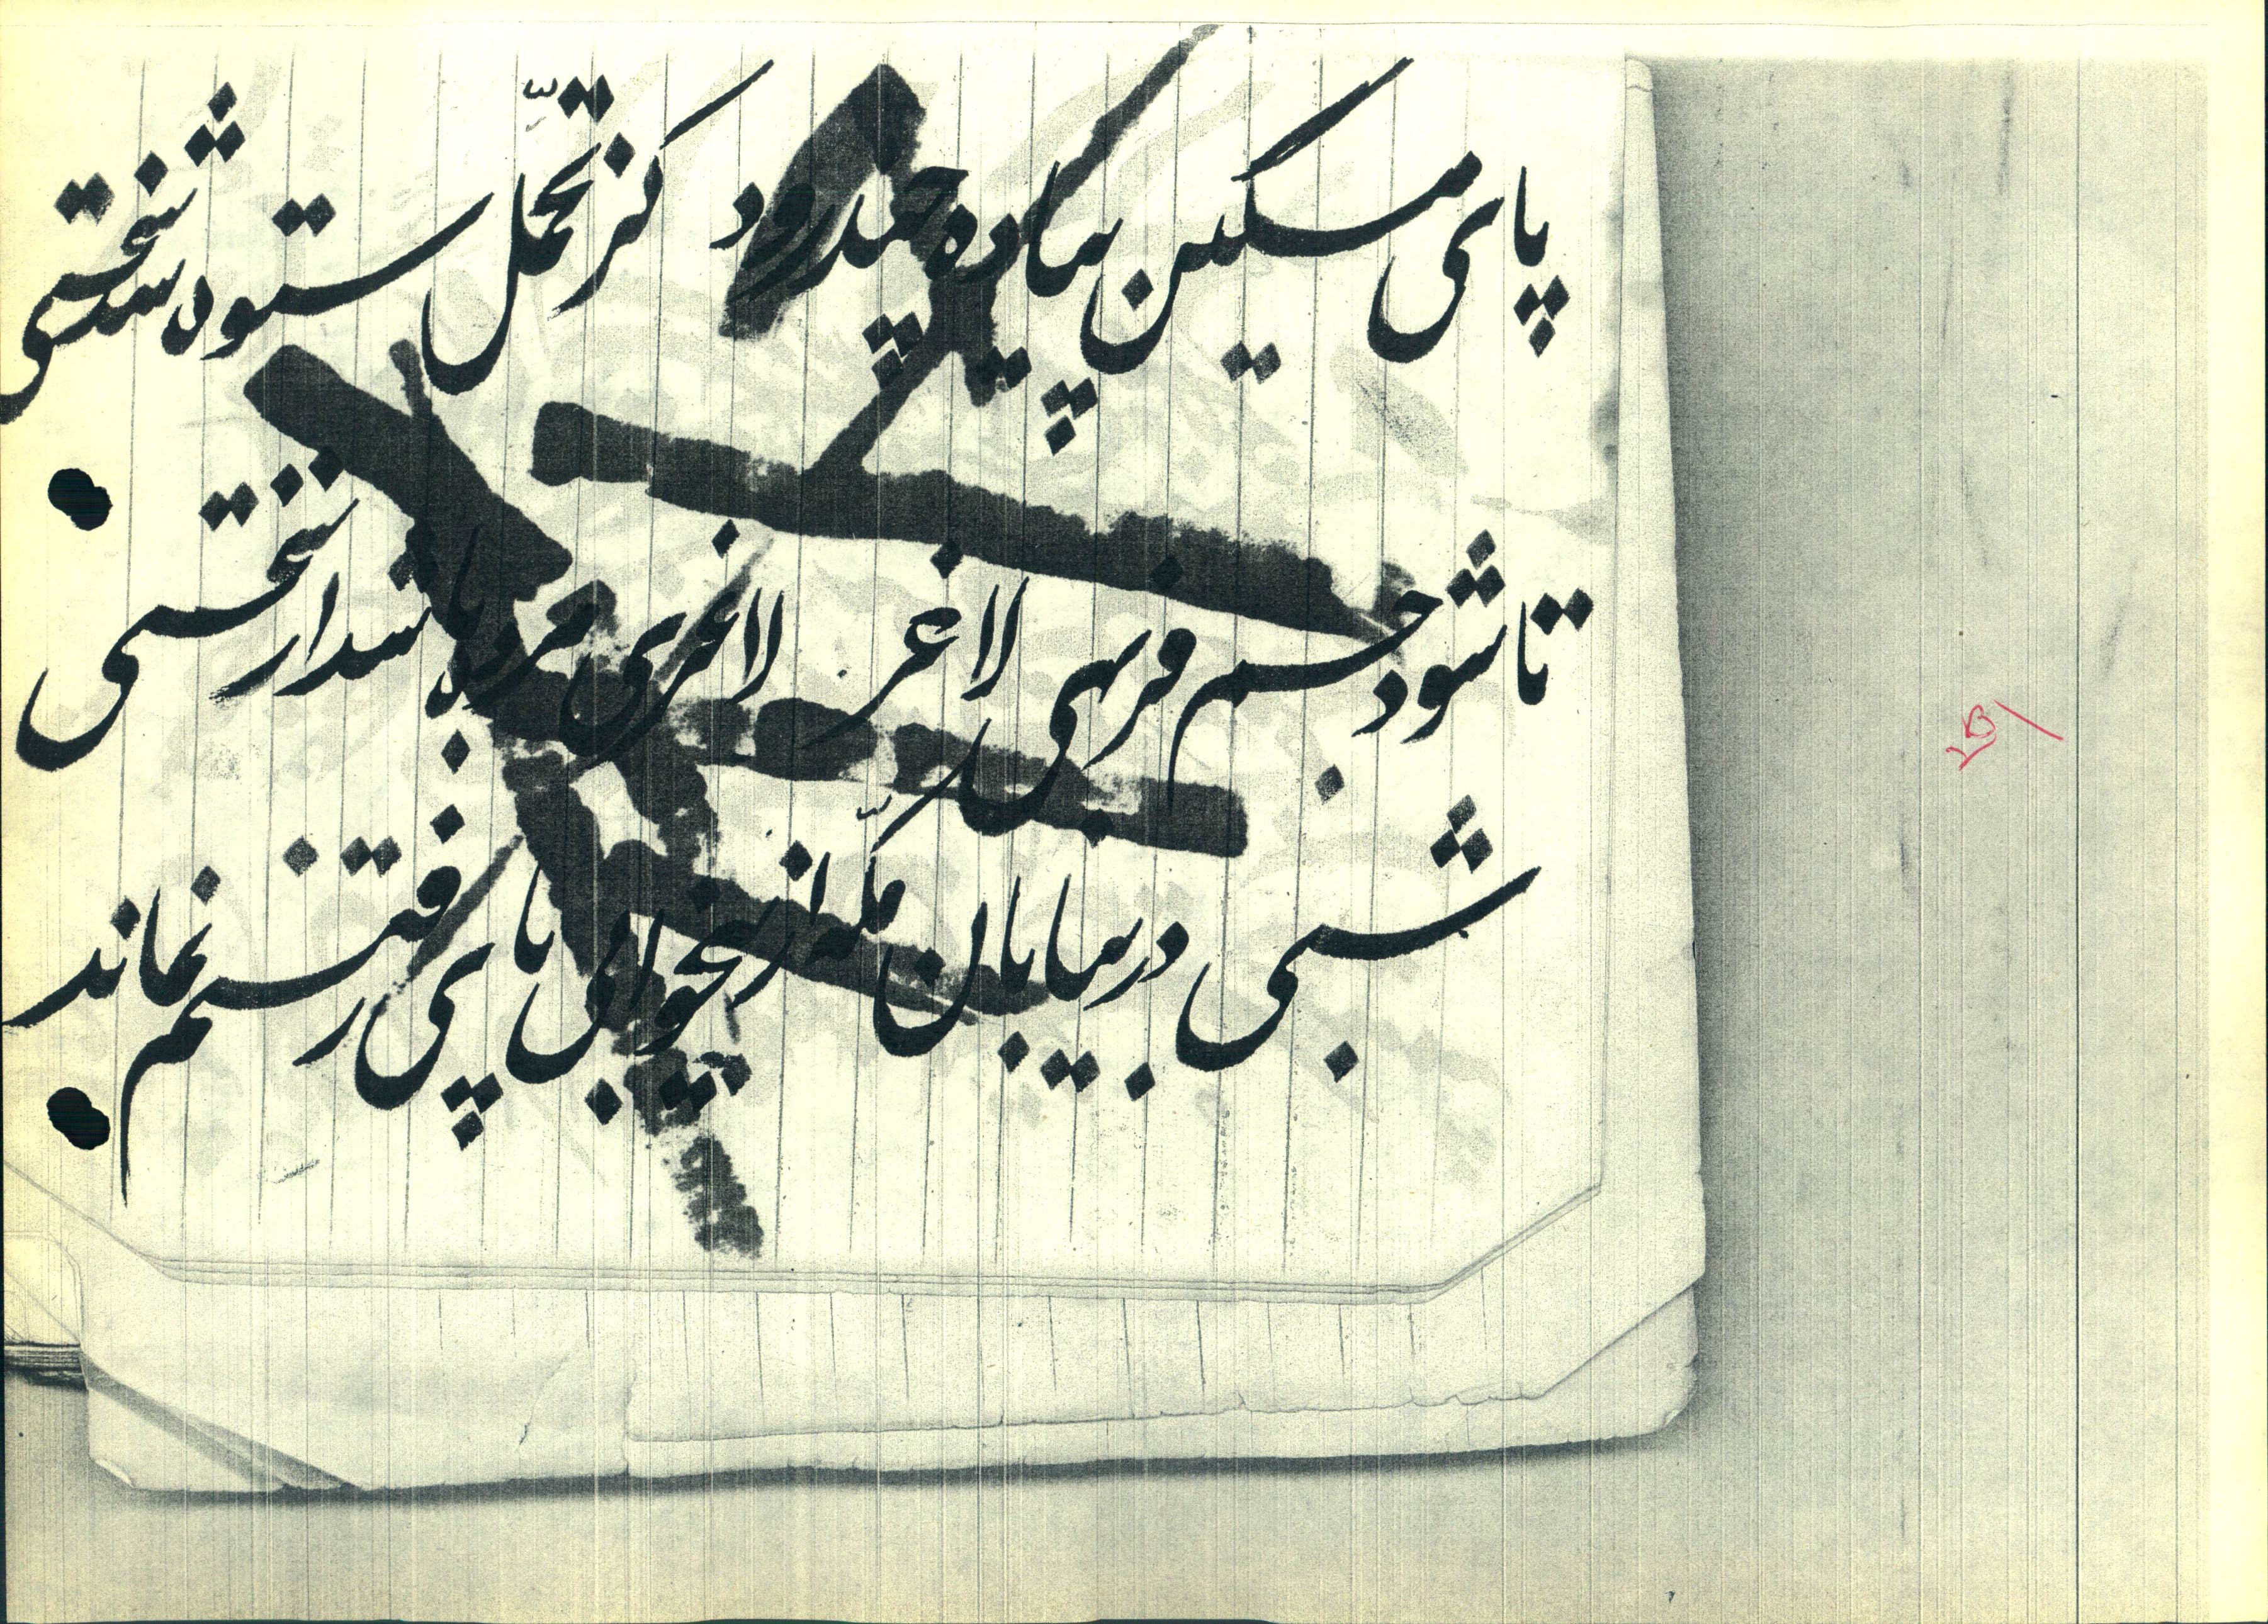 پای مسکین پیاده چند رود کز تحمّل ستوه شد بختی
تا شود جسم فربهی لاغر لاغری مرده باشد از سختی
شبی در بیابان مکّه از بیخوابی پای رفتنم نماند